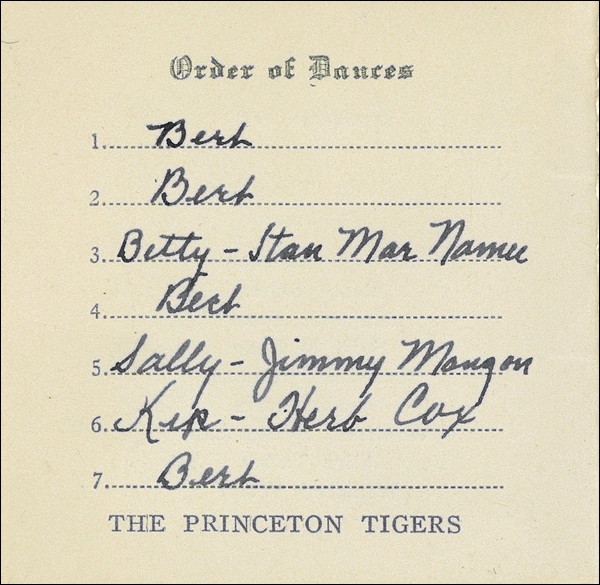 Order of Dances
1. Bert
2. Bert
3. Betty - Stan Mac Namee
4. Bert
5. Sally - Jimmy Mangon
6. Kip - Herb Cox
7. Bert
THE PRINCETON TIGERS